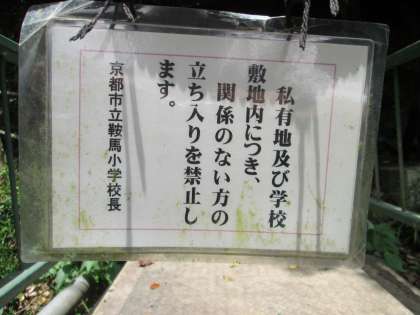 私有地及び学校
敷地内につき、
関係のない方の
立ち入りを禁止し
ます。
京都市立鞍馬小学校長